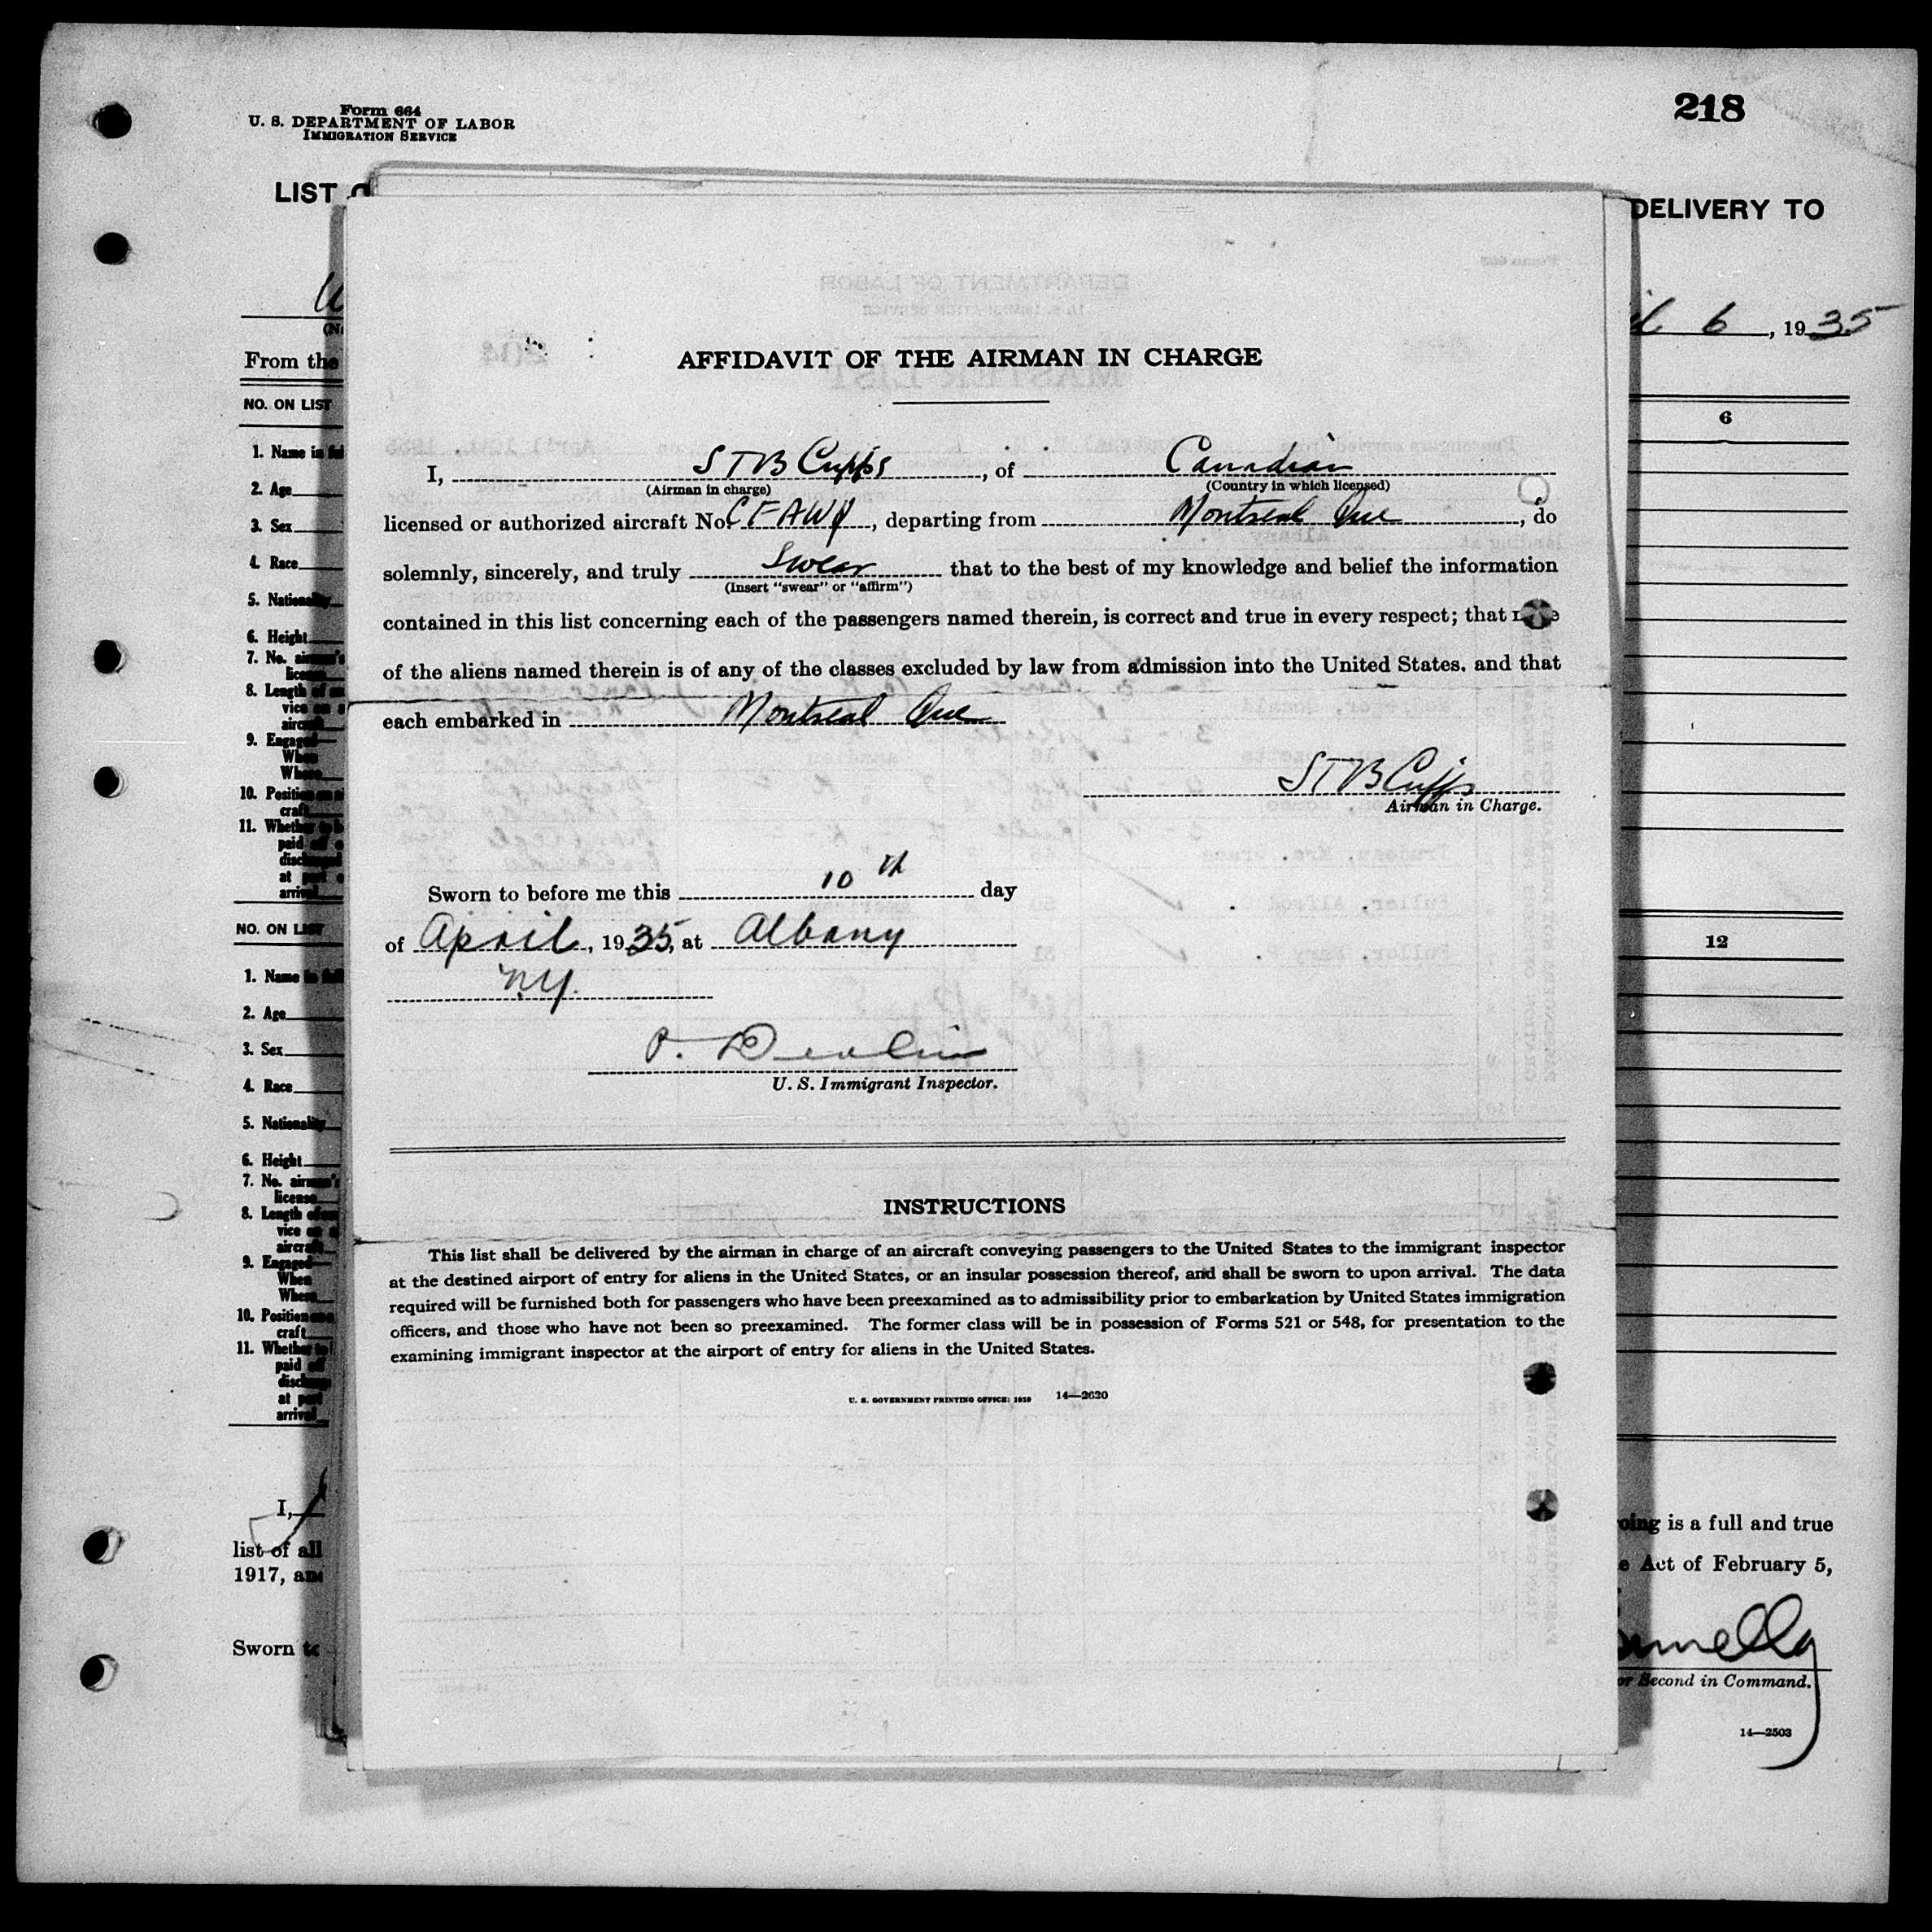 Form 664
U. S. DEPARTMENT OF LABOR
IMMIGRATION SERVICE
218
LIST
DELIVERY TO
6, 1935
From the
NO. ON LIST
6
1. Name in full
2. Age
3. Sex
4. Race
5. Nationality
6. Height
7. No. airman's
license
8. Length of
vice on
aircraft
9. Engaged—
When
Where
10. Position
craft
11. Whether
paid off
at
arrival
NO. ON LIST
12
1. Name
2. Age
3. Sex
4. Race
5. Nationality
6. Height
7. No. airman's
license
8. Length of
vice on
aircraft
9. Engaged—
When
Where
10. Position
craft
11. Whether
paid off
at port
arrival
I,
list of all
1917, and
Sworn to
going is a full and true
Act of February 5,
or Second in Command.
14—2503
AFFIDAVIT OF THE AIRMAN IN CHARGE
I, STB Cupps, of Canadian
(Airman in charge) (Country in which licensed)
licensed or authorized aircraft No. departing from Montreal Que, do
solemnly, sincerely, and truly Swear that to the best of my knowledge and belief the information
(Insert "swear" or "affirm")
contained in this list concerning each of the passengers named therein, is correct and true in every respect; that none
of the aliens named therein is of any of the classes excluded by law from admission into the United States. and that
each embarked in Montreal Que
STB Cupps
Airman in Charge.
Sworn to before me this 10th day
of April, 1935, at Albany
N.Y.
P. Devlin
U. S. Immigrant Inspector.
INSTRUCTIONS
This list shall be delivered by the airman in charge of an aircraft conveying passengers to the United States to the immigrant inspector
at the destined airport of entry for aliens in the United States, or an insular possession thereof, and shall be sworn to upon arrival. The data
required will be furnished both for passengers who have been preexamined as to admissibility prior to embarkation by United States immigration
officers, and those who have not been so preexamined. The former class will be in possession of Forms 521 or 548, for presentation to the
examining immigrant inspector at the airport of entry for aliens in the United States.
U. S. GOVERNMENT PRINTING OFFICE: 1929 14—2620